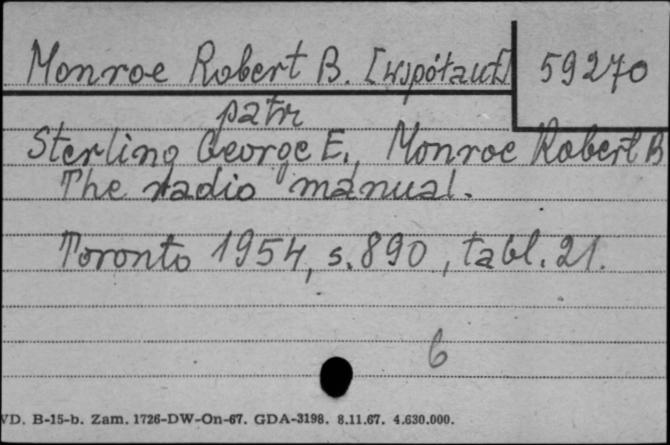 Monroe Robert B. [współaut] 59270
patr
Sterling George E., Monroe Robert B
The radio manual.
Toronto 1954, s. 890, tabl. 21.
6
VD. B-15-b. Zam. 1726-DW-On-67. GDA-3198. 8.11.67. 4.630.000.